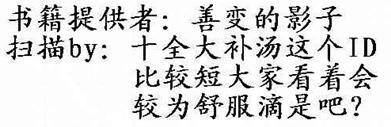 书籍提供者：善变的影子
扫描by：十全大补汤这个ID
比较短大家看着会
较为舒服滴是吧？